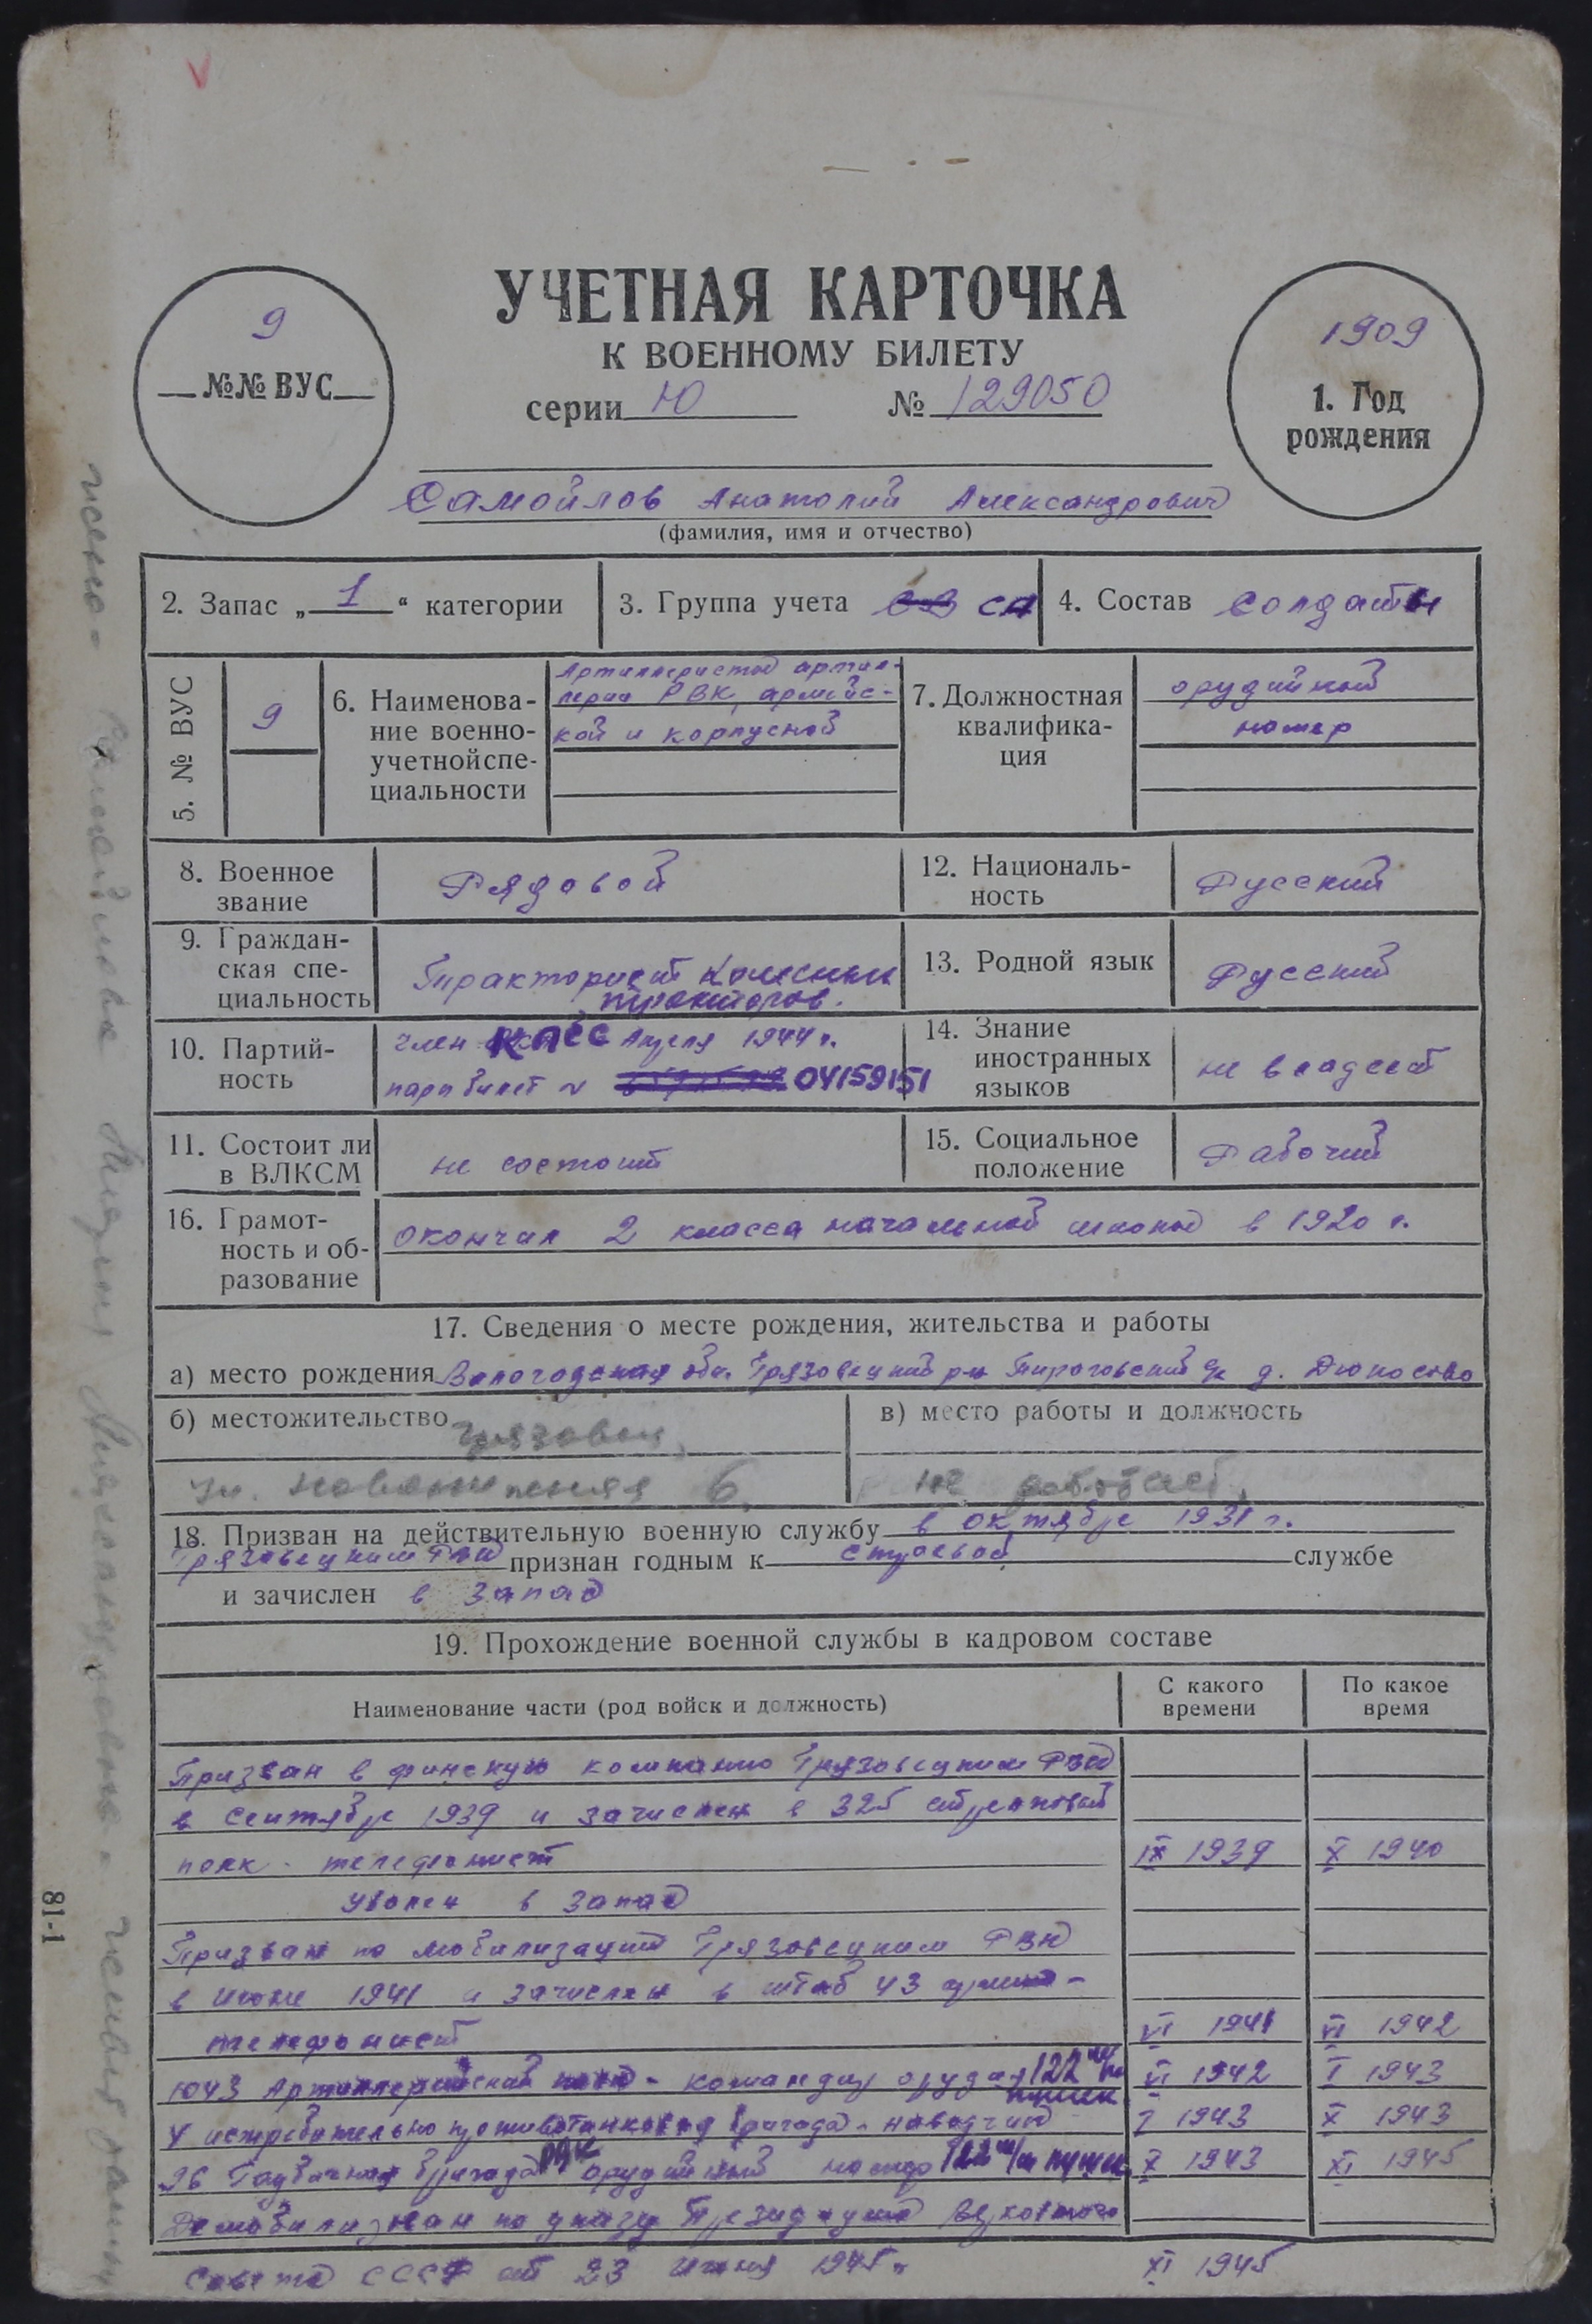 УЧЕТНАЯ КАРТОЧКА
К ВОЕННОМУ БИЛЕТУ
серии Ю № 129050
9
№№ ВУС
1909
1. Год
рождения
Самойлов Анатолий Александрович
(фамилия, имя и отчество)
2. Запас „ 1 “ категории
3. Группа учета СА
4. Состав Солдаты
5. № ВУС
9
6. Наименова-
ние военно-
учетной спе-
циальности
Артиллеристы артил-
лерии РВК, армейс-
кой и корпусной
7. Должностная
квалифика-
ция
орудийный
номер
8. Военное
звание
Рядовой
12. Националь-
ность
Русский
9. Граждан-
ская спе-
циальность
Тракторист Колесных
тракторов.
13. Родной язык
Русский
10. Партий-
ность
член КПСС Апреля 1944 г.
парт билет № 04159151
14. Знание
иностранных
языков
не владеет
11. Состоит ли
в ВЛКСМ
не состоит
15. Социальное
положение
Рабочий
16. Грамот-
ность и об-
разование
окончил 2 класса начальной школы в 1920 г.
17. Сведения о месте рождения, жительства и работы
а) место рождения Вологодская обл. Грязовецкий р-н с/с д.
б) местожительство Грязовец,
ул. 6.
в) место работы и должность
не работает.
18. Призван на действительную военную службу в октябре 1931 г.
Грязовецким РВК признан годным к строевой службе
и зачислен в запас
19. Прохождение военной службы в кадровом составе
Наименование части (род войск и должность)
С какого
времени
По какое
время
Призван в финскую компанию Грязовецким РВК
в сентябре 1939 и зачислен в 325 стрелковый
полк - телефонист IX 1939 X 1940
Уволен в запас
Призван по мобилизации Грязовецким РВК
в июне 1941 и зачислен в штаб 43 армии -
телефонист VI 1941 VI 1942
1043 Артиллерийский полк - командир орудия 122 м/м пушек VI 1942 I 1943
4 истребительно противотанковая бригада - наводчик I 1943 X 1943
26 бригада РГК орудийный номер 122 м/м пушек X 1943 XI 1945
Демобилизован по указу Президиума Верховного
Совета СССР от 23 июня 1945 г. XI 1945
81-1